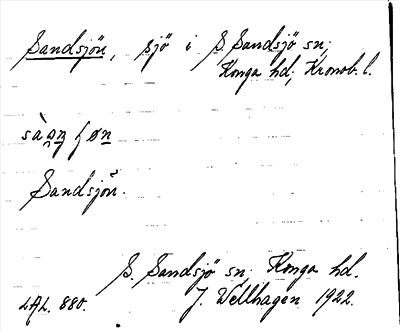 Sandsjön, sjö i S. Sandsjö sn;
Konga hd, Kronob. l.
Sandsjön.
S. Sandsjö sn, Konga hd.
LAL. 880. J. Wellhagen 1922.